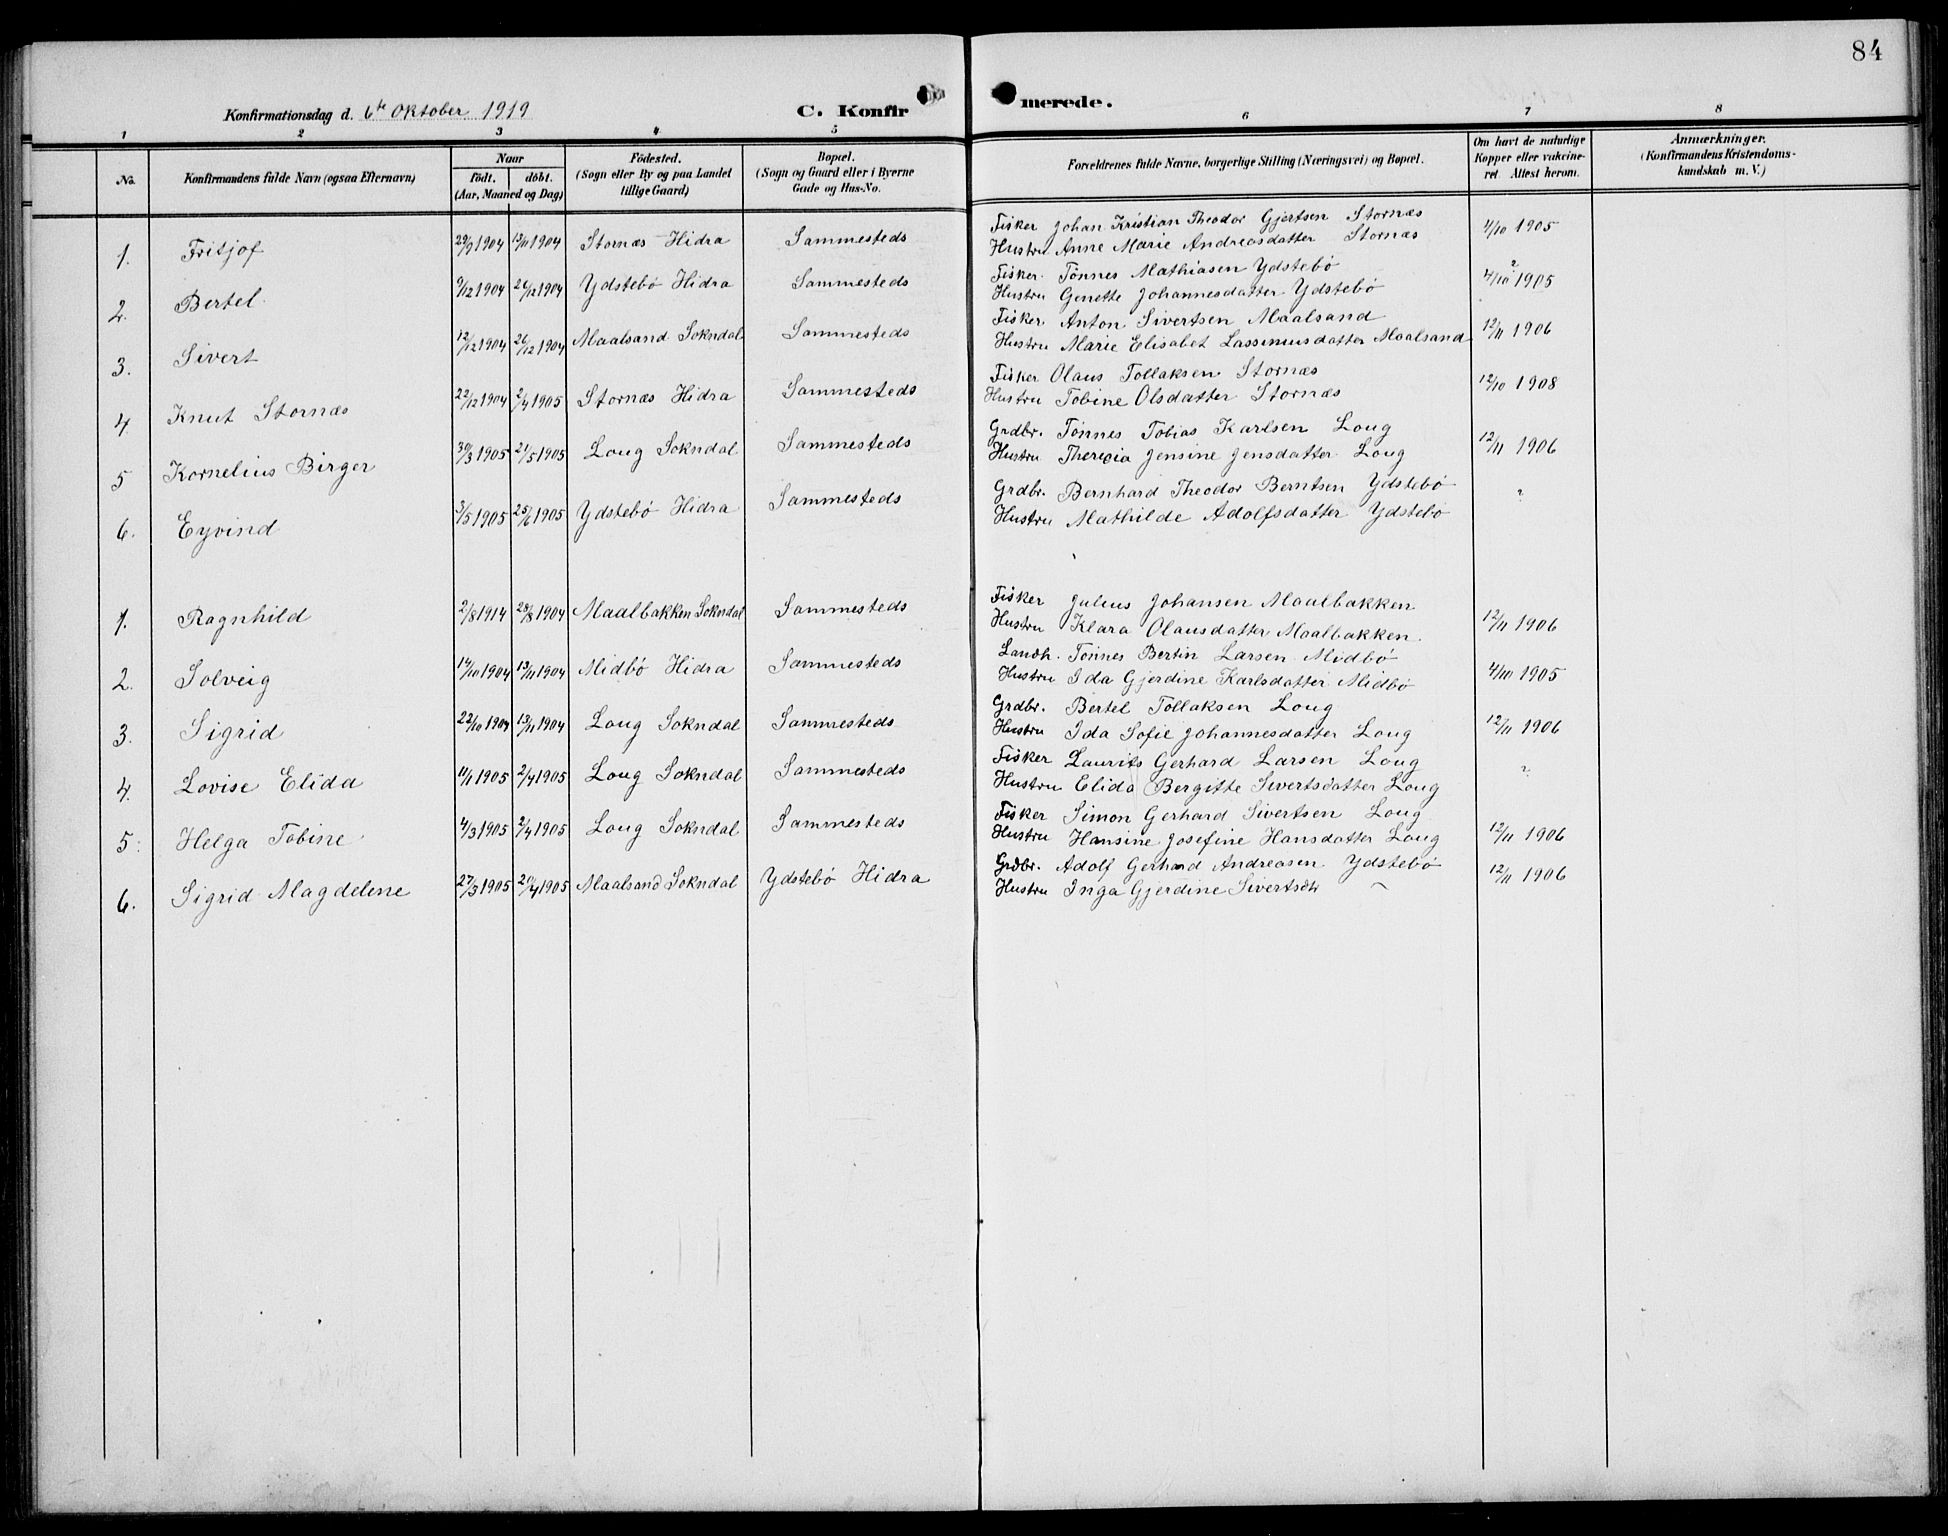 84
Konfirmationsdag d. 6te Oktober 1919 C. Konfirmerede.
1 2 3 4 5 6 7 8
No. Konfirmandens fulde Navn (ogsaa Efternavn) Naar födt. döbt. (Aar, Maaned og Dag) Födested. (Sogn eller By og paa Landet tillige Gaard) Bopæl. (Sogn og Gaard eller i Byerne Gade og Hus-No. Forældrenes fulde Navne, borgerlige Stilling (Næringsvei) og Bopæl. Om havt de naturlige Kopper eller vakcineret. Attest herom. Anmærkninger. (Konfirmandens Kristendomskundskab m. V.)
1. Fritjof 29/9 1904 13/11 1904 Stornæs Hidra Sammesteds Fisker Johan Kristian Theodor Gjertsen Stornæs 4/10 1905
Hustru Anne Marie Andreasdatter Stornæs
2. Bertel 9/12 1904 26/12 1904 Ydstebø Hidra Sammesteds Fisker. Tønnes Mathiasen Ydstebø 4/10 ? 1905
Hustru Genette Johannesdatter Ydstebø
3. Sivert 12/12 1904 26/12 1904 Maalsand Sokndal Sammesteds Fisker. Anton Sivertsen Maalsand 12/11 1906
Hustru Marie Elisabet Lassinusdatter Maalsand
4. Knut Stornæs 22/12 1904 2/4 1905 Stornæs Hidra Sammesteds Fisker Olaus Tollaksen Stornæs 12/10 1908
Hustru Tobine Olsdatter Stornæs
5 Kornelius Birger 30/3 1905 21/5 1905 Loug Sokndal Sammesteds Grdbr. Tønnes Tobias Karlsen Loug 12/11 1906
Hustru Therecia Jensine Jensdatter Loug
6. Eyvind 3/5 1905 25/6 1905 Ydstebø Hidra Sammesteds Grdbr. Bernhard Theodor Berntsen Ydstebø ?
Hustru Mathilde Adolfsdatter Ydstebø
1. Ragnhild 2/8 1914 28/8 1904 Maalbakken Sokndal Sammesteds Fisker Julius Johansen Maalbakken 12/11 1906
Hustru Klara Olausdatter Maalbakken.
2. Solveig 14/10 1904 13/11 1904 Midbø Hidra Sammesteds Landh. Tønnes Bertin Larsen Midbø 4/10 1905
Hustru Ida Gjerdine Karlsdatter Midbø
3. Sigrid 22/10 1904 13/11 1904 Loug Sokndal Sammesteds Grdbr. Bertel Tollaksen Loug 12/11 1906
Hustru Ida Sofie Johannesdatter Loug
4. Lovise Elida 11/1 1905 2/4 1905 Loug Sokndal Sammesteds Fisker Laurits Gerhard Larsen Loug ?
Hustru Elida Bergitte Sivertsdatter Loug
5. Helga Tobine 4/3 1905 2/4 1905 Loug Sokndal Sammesteds Fisker Simon Gerhard Sivertsen Loug 12/11 1906
Hustru Hansine Josefine Hansdatter Loug
6. Sigrid Magdelene 27/3 1905 20/4 1905 Maalsand Sokndal Ydstebø Hidra Grdbr. Adolf Gerhard Andreasen Ydstebø 12/11 1906
Hustru Inga Gjerdine Sivertsdtr ~